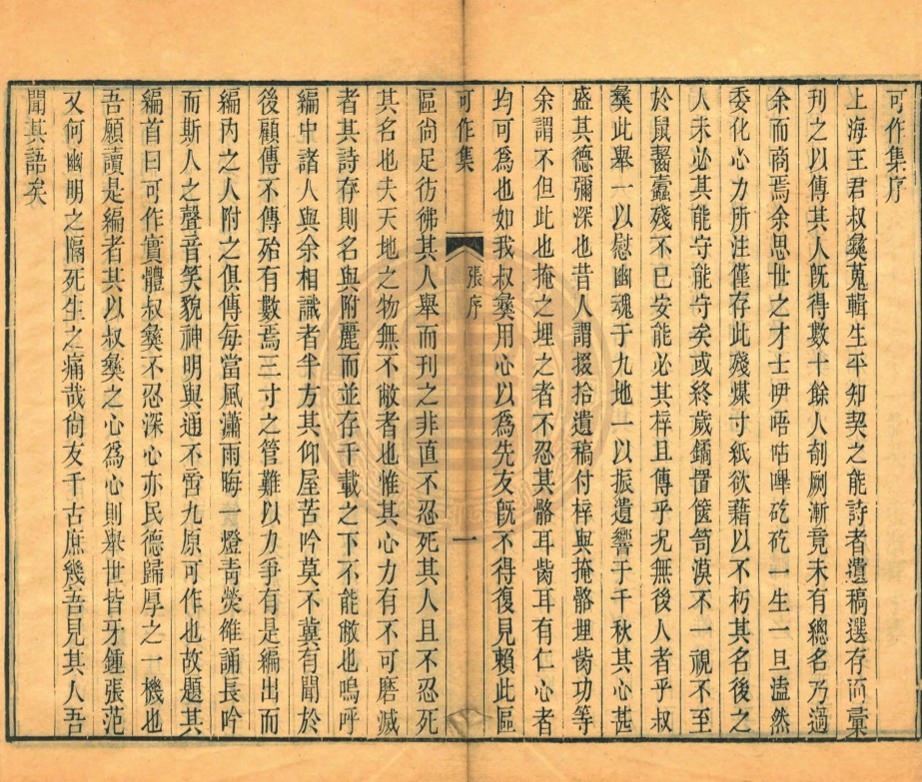 可作集序
上海王君叔彝蒐輯生平知契之能詩者遺稿選存而彙
刊之以傳其人旣得數十餘人剞劂漸竟未有總名乃過
余而商焉余思世之才士咿唔咕嗶矻矻一生一旦溘然
委化心力所注僅存此殘煤寸紙欲藉以不朽其名後之
人未必其能守能守矣或終歲鐍置篋笥漠不一視不至
於鼠齧蠹殘不已安能必其梓且傳乎况無後人者乎叔
彝此舉一以慰幽魂于九地一以振遺響于千秋其心甚
盛其德彌深也昔人謂掇拾遺稿付梓與掩骼埋胔功等
余謂不但此也掩之埋之者不忍其骼耳胔耳有仁心者
均可爲也如我叔彝用心以爲先友旣不得復見賴此區
可作集
張序
一
區尙足彷彿其人舉而刊之非直不忍死其人且不忍死
其名也夫天地之物無不敝者也惟其心力有不可磨滅
者其詩存則名與附麗而並存千載之下不能敝也嗚呼
編中諸人與余相識者半方其仰屋苦吟莫不冀有聞於
後顧傳不傳殆有數焉三寸之管難以力爭有是編出而
編內之人附之俱傳每當風瀟雨晦一燈靑熒雒誦長吟
而斯人之聲音笑貌神明與通不啻九原可作也故題其
編首曰可作實體叔彝不忍深心亦民德歸厚之一機也
吾願讀是編者其以叔彝之心爲心則舉世皆牙鍾張范
又何幽明之隔死生之痛哉尙友千古庶幾吾見其人吾
聞其語矣